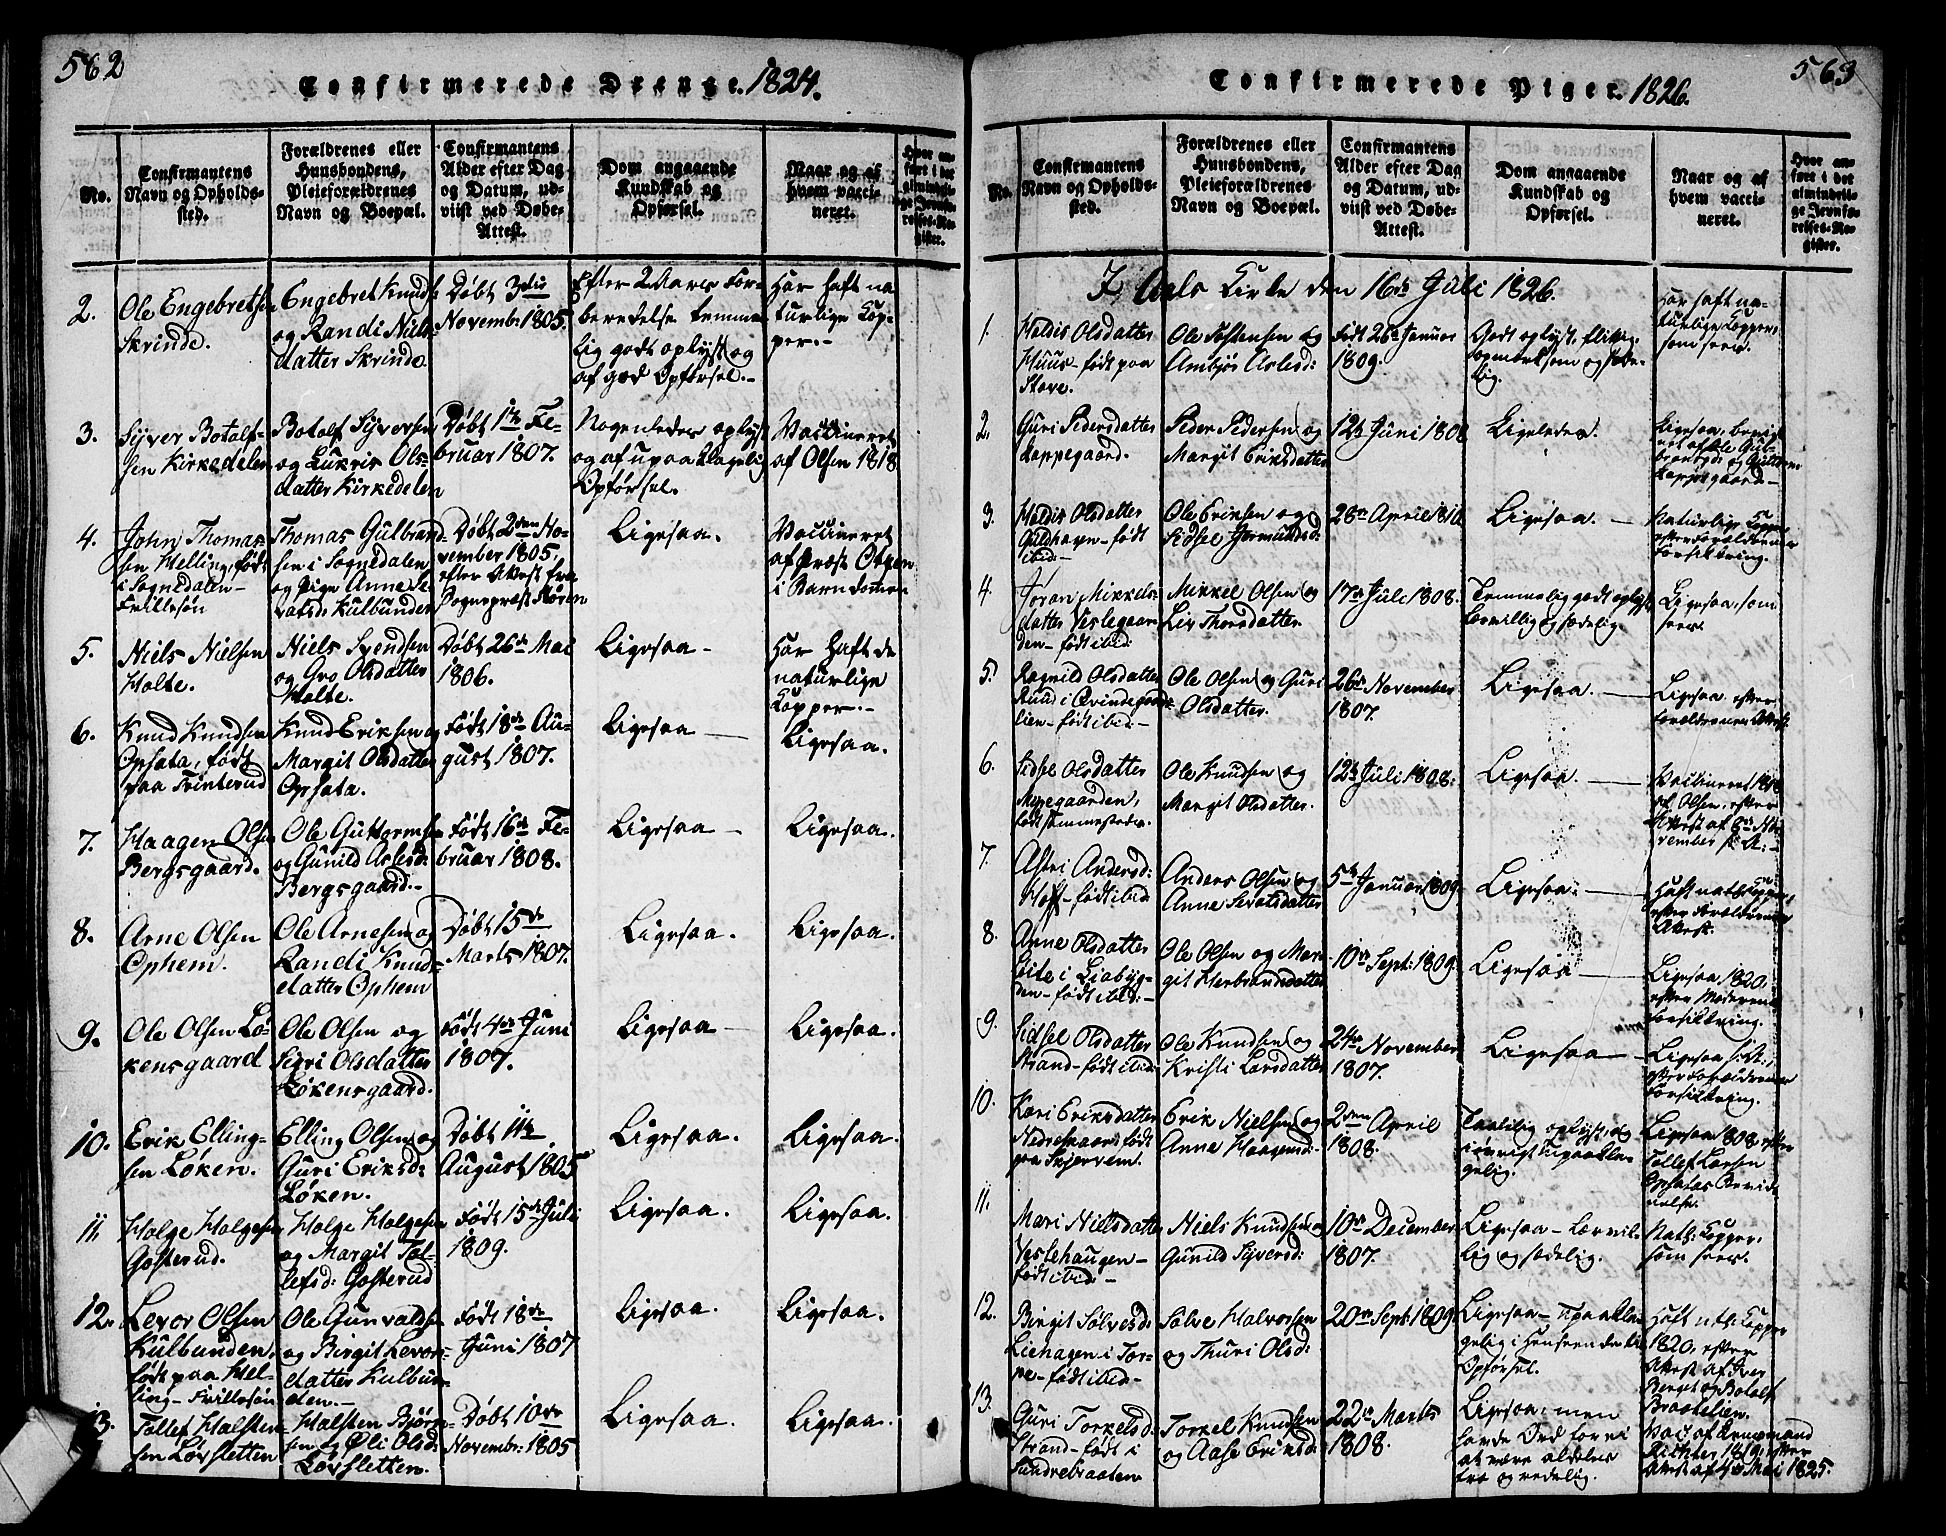 562
Confirmerede Drenge. 1824.
No.
Confirmantens
Navn og Opholds-
sted.
Forældrenes eller
Huusbondens,
Pleieforældrenes
Navn og Boepæl.
Confirmantens
Alder efter Dag
og Datum, ud-
viist ved Døbe-
Attest.
Dom angaaende
Kundskab og
Opførsel.
Naar og af
hvem vacci-
neret.
Hvor an-
ført i det
almindeli-
ge Jevnfø-
relses-Re-
gister.
2.
Ole Engebretsen
Skrinde.
Engebret Knuds
og Randi Niels-
datter Skrinde
Døbt 3die
Novembr: 1805.
Efter 2 Aars For-
beredelse temme-
lig godt oplyst og
af god Opførsel.-
Har haft na-
turlige Kop-
per.-
3.
Syver Botolf-
sen Kirkedelen
Botolf Syversen
og Lukris Ols-
datter Kirkedelen
Døbt 1te Fe-
bruar 1807.
Nogenledes oplyst
og af upaaklagelig
Opførsel.
Vaccineret
af Olsen 1818
4.
John Thomas-
sen Helling, født
i Sognedalen-
Frillesøn
Thomas Gulbrand-
sen i Sognedalen
og Pige Anne Se-
vatsd: Kulbunden
Døbt 2den No-
vember 1805,
efter Attest fra
Sognepræst Støren
Ligesaa.
Vaccineret
af Præst Otzen
i Barndommen
5.
Niels Nielsen
Holte.
Niels Svendsen
og Gro Olsdatter
Holte.
Døbt 26de Mai
1806.
Ligesaa -
Har haft de
naturlige
Kopper.-
6.
Knud Knudsen
Opsata, født
paa Trinterud
Knud Eriksen og
Margit Olsdatter
Opsata.
Født 18de Au-
gust 1807.
Ligesaa
Ligesaa.
7.
Haagen Olsen
Bergsgaard.
Ole Guttormsen
og Gunild Aslesd:
Bergsgaard.-
Født 16de Fe-
bruar 1808.
Ligesaa -
Ligesaa.
8.
Arne Olsen
Ophem.
Ole Arnesen og
Randi Knuds-
datter Ophem
Døbt 15de
Marts 1807.
Ligesaa.
Ligesaa.
9.
Ole Olsen Lø-
kensgaard
Ole Olsen og
Sigri Olsdatter
Løkensgaard.
Født 4de Juni
1807.
Ligesaa -
Ligesaa.
10.
Erik Elling-
sen Løken.
Elling Olsen og
Guri Eriksd:
Løken.
Døbt 11te
August 1805
Ligesaa.
Ligesaa.
11
Holge Holgesen
Gosterud.
Holge Holgesen
og Margit Tol-
lefsd: Gosterud
Født 15de Juli
1809.
Ligesaa.
Ligesaa.
12.
Levor Olsen
Kulbunden,
født paa Hel-
ling - Frillesøn
Ole Gunvalds
og Birgit Levors-
datter Kulbun-
den.-
Født 18de
Juni 1807
Ligesaa.
Ligesaa.
13.
Tollef Halsten-
sen Lørsletten
Halsten Bjørn-
sen og Øli Olsd:
Lørsletten.
Døbt 10de
Novembr: 1805
Ligesaa.
Ligesaa.
563
Confirmerede Piger. 1826.
No.
Confirmantens
Navn og Opholds-
sted.
Forældrenes eller
Huusbondens,
Pleieforældrenes
Navn og Boepæl.
Confirmantens
Alder efter Dag
og Datum, ud-
viist ved Døbe-
Attest.
Dom angaaende
Kundskab og
Opførsel.
Naar og af
hvem vacci-
neret.
Hvor an-
ført i det
almindeli-
ge Jevnfø-
relses-Re-
gister.
I Aals Kirke den 16de Juli 1826.
1.
Holdis Olsdatter
Huus - født paa
Stave.
Ole Tostensen og
Ambjør Aslesd:
Født 26de Januar
1809.
Godt oplyst, flittig,
opmærksom og sæde-
lig.
Har haft na-
turlige Kopper,
som sees.
2.
Guri Pedersdatter
Kappegaard.
Peder Pedersen og
Margit Eriksdatter
12te Juni 1808
Ligeledes.
Ligesaa, bevid-
net af Ole Gul-
brandsgd og Guttorm
Kappegaard-
3.
Holdis Olsdatter
født
ibid:-
Ole Eriksen og
Sidsel Gormundsd:
28de April 1810
Ligesaa. -
Naturlige Kopper
efter Forældrenes
Forsikkring.
4.
Jøran Mikkels-
datter Veslegaar-
den - født ibid:
Mikkel Olsen og
Liv Thorsdatter
17de Juli 1808.
Temmelig godt oplyst,
lærvillig og sædelig
Ligesaa, som
sees.
5.
Ragnild Olsdatter
Ruud i Qvindegaards-
lien - født ibid:-
Ole Olsen og Guri
Olsdatter.
26de November
1807.
Ligesaa. -
Ligesaa, efter
Forældrenes Attest.
6.
Sidsel Olsdatter
Myregaarden,
født sammesteds.
Ole Knudsen og
Margit Olsdatter.
12te Juli 1808.
Ligesaa. -
Vaccineret 1818
af Olsen, efter
Attest af 8de No-
vember s. A:-
7.
Astri Andersd:
Hoff - født ibid
Anders Olsen og
Anne Sevatsdatter
5te Januar 1809.
Ligesaa. -
Haft nat: Kopper,
efter Forældrenes
Attest.
8.
Anne Olsdatter
Leite i Liabyg-
den - født ibid:-
Ole Olsen og Mar-
git Herbrandsdatter
10de Sept: 1809.
Ligesaa -
Ligesaa 1820,
efter Moderens
Forsikkring.
9.
Sidsel Olsdatter
Strand - født ibid:
Ole Knudsen og
Kristi Larsdatter
24de November
1807.
Ligesaa -
Ligesaa s: A:,
efter Forældrenes
Forsikkring.
10.
Kari Eriksdatter
Nedregaard født
paa Skjervem.
Erik Nielsen og
Anne Haagensd:
2den April
1808.
Taalelig oplyst, og
iøvrigt upaakla-
gelig.
Ligesaa 1808, efter
Tollef Larsen
Opsatas Bevid-
nelse.
11.
Mari Nielsdatter
Veslehaugen -
født ibid:-
Niels Knudsen og
Gunild Syversd:
10de December
1807.
Ligesaa - Lærvil-
lig og sædelig.
Nat: Kopper,
som sees.
12.
Birgit Sølvesd:
Liehagen i Tor-
pe - født ibid:-
Sølve Halvorsen
og Thuri Olsd:
20de Sept: 1809
Ligesaa - upaakla-
gelig i Henseende til
Opførsel.
Haft nat: Kopper
1820, efter
Attest af Iver
Berget og Botolf
Braatelien.
13.
Guri Torkelsd:
Strand - født i
Sundrebraaten
Torkel Knudsen
og Aase Eriksd:
22de Marts
1808.
Ligesaa, men
havde Ord for ei
at være aldeles
tro og redelig.
Vacc: af
1819, efter
Attest af 4de Mai 1825.